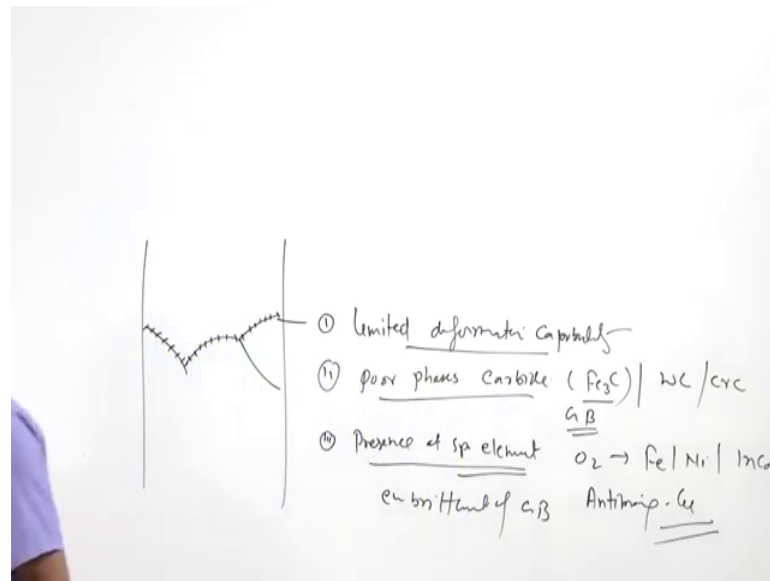 ① limited deformatin Capability
(ii) poor phases Carbide (Fe3C) | WC / CrC
GB
(iii) Presence of sp element O2 → Fe | Ni | Inco
embrittlement of GB Antimony - Cu